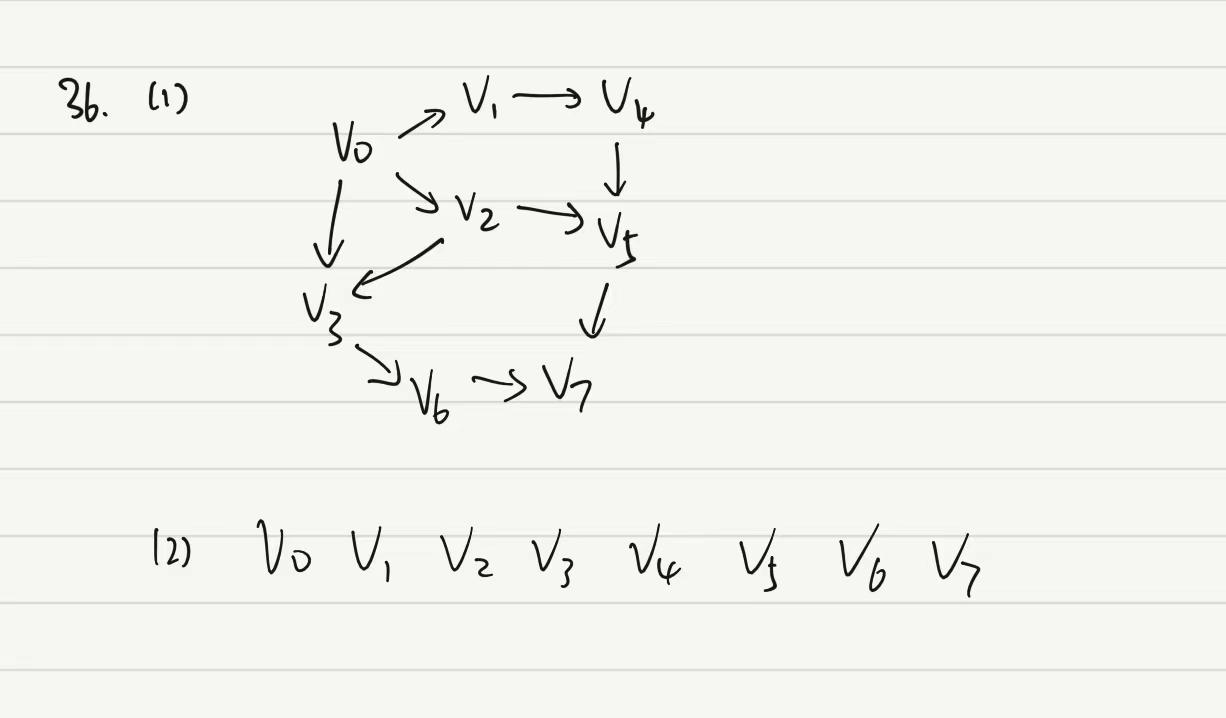 36. (1)
V1 → V4
V0
V2 → V5
V3
V6 → V7
(2) V0 V1 V2 V3 V4 V5 V6 V7